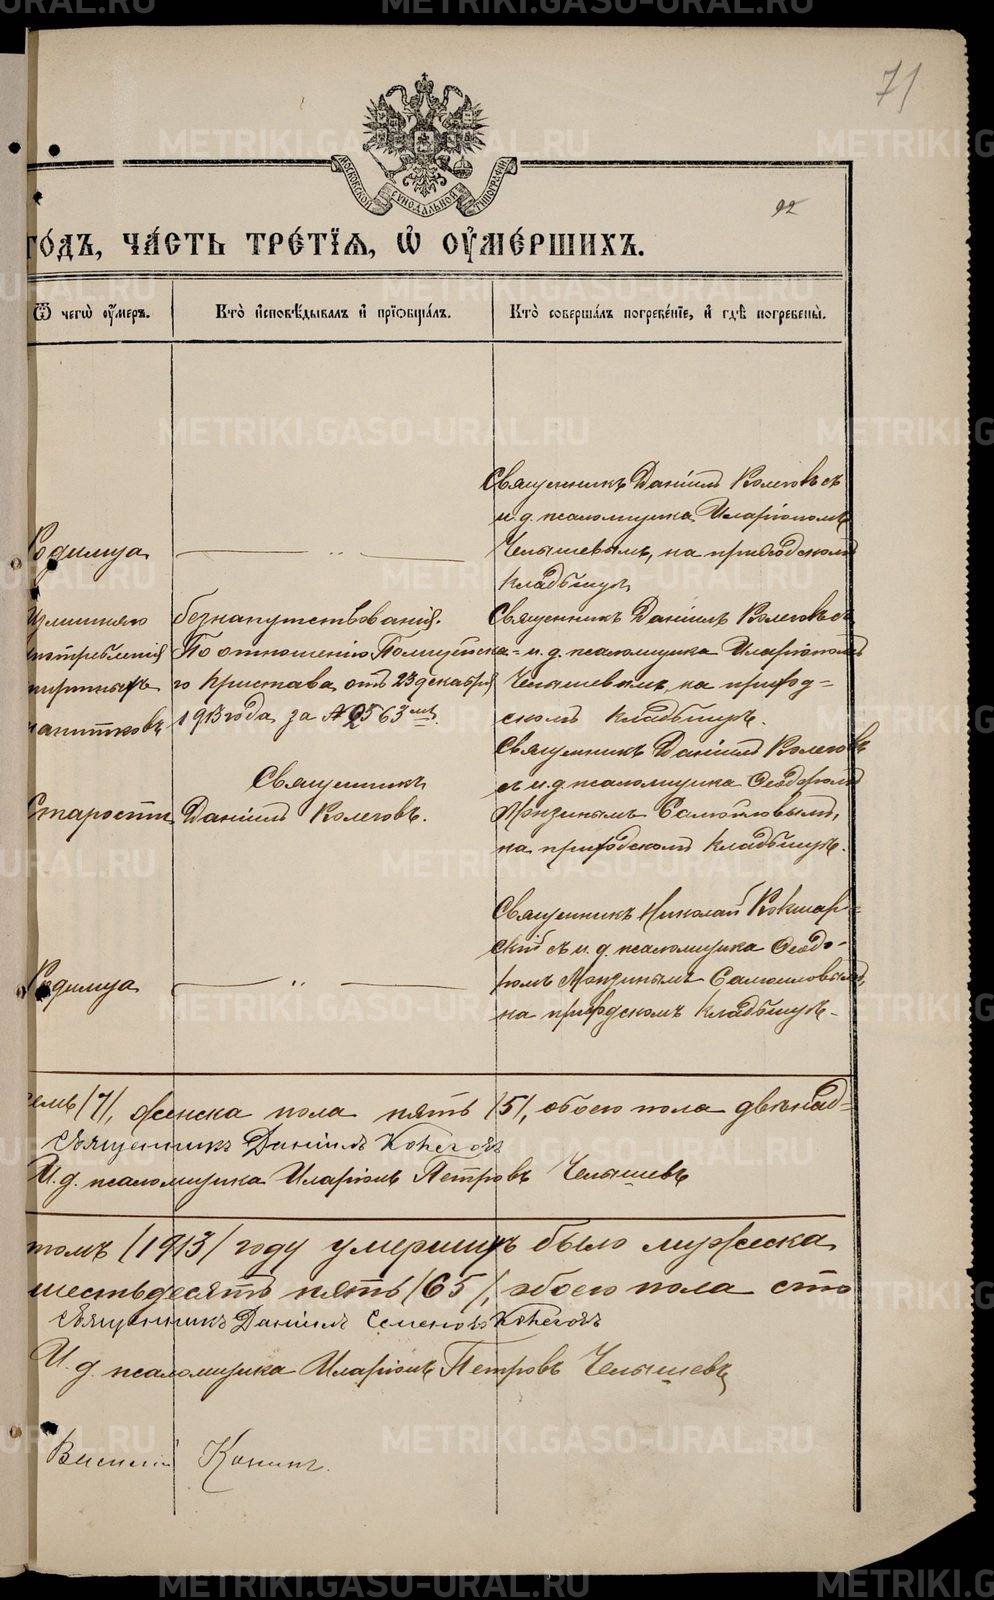 71
МОСКОВСКОЙ СѴНОДАЛЬНОЙ ТИПОГРАФІИ
92
го́дъ, ча́сть тре́тїѧ, ѡ҆ ᲂу҆ме́ршихъ.
Ѿ чегѡ̀ ᲂу҆́меръ.
Кто̀ и҆сповѣ́дывалъ и҆ прїѻбща́лъ.
Кто̀ соверша́лъ погребе́нїе, и҆ гдѣ̀ погребены̀.
Священникъ Даніилъ Колеговъ съ
и.д. псаломщика Иларіономъ
Родимца
Челышевымъ, на приходскомъ
кладбищѣ
излишняго
употребленія
спиртныхъ
напитковъ
безнапутствованія.
По отношенію Полицейска-
го Пристава отъ 23 декабря
1913 года за № 2563 мъ
Священникъ Даніилъ Колеговъ съ
и.д. псаломщика Иларіономъ
Челышевымъ, на приход=
скомъ кладбищѣ.
Старости
Священникъ
Даніилъ Колеговъ.
Священникъ Даніилъ Колеговъ
съ и.д. псаломщика Ѳеодоромъ
Самойловымъ,
на приходскомъ кладбищѣ.
Родимца
Священникъ Николай Кокшар=
скій съ и.д. псаломщика Ѳеодо-
ромъ Самойловымъ,
на приходскомъ кладбищѣ.
семь /7/, женска пола пять /5/, обоего пола двѣнад=
Священникъ Даніилъ Колеговъ
И.д. псаломщика Иларіонъ Петровъ Челышевъ
томъ /1913/ году умершихъ было мужеска
шестьдесятъ пять /65/, обоего пола сто
Священникъ Даніилъ Семеновъ Колеговъ
И.д. псаломщика Иларіонъ Петровъ Челышевъ
METRIKI.GASO-URAL.RU